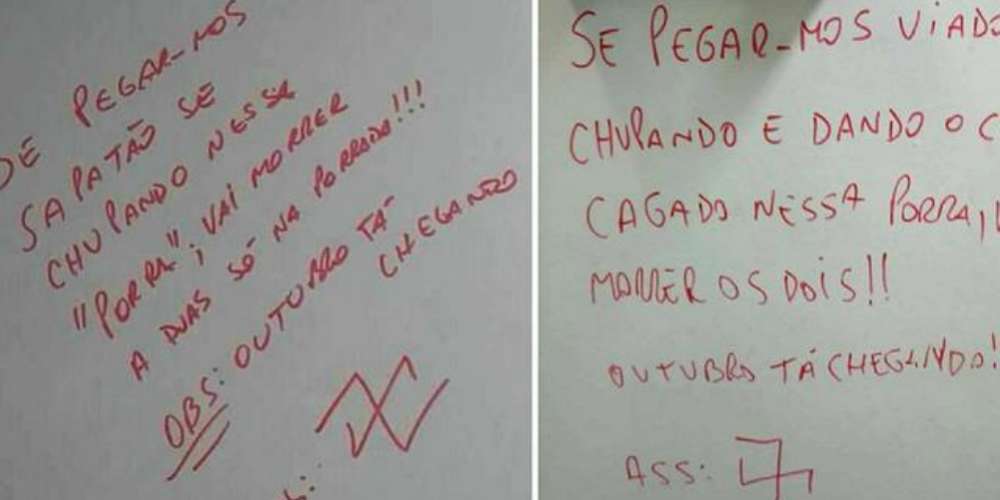 SE PEGAR-MOS
SAPATÃO SE
CHUPANDO NESSA
"PORRA"; VAI MORRER
A DUAS SÓ NA PORRADA!!!
OBS: OUTUBRO TÁ
CHEGANDO
SE PEGAR-MOS
CHUPANDO E DANDO O
CAGADO NESSA PORRA,
MORRER OS DOIS!!
OUTUBRO TÁ CHEGANDO!
ASS: